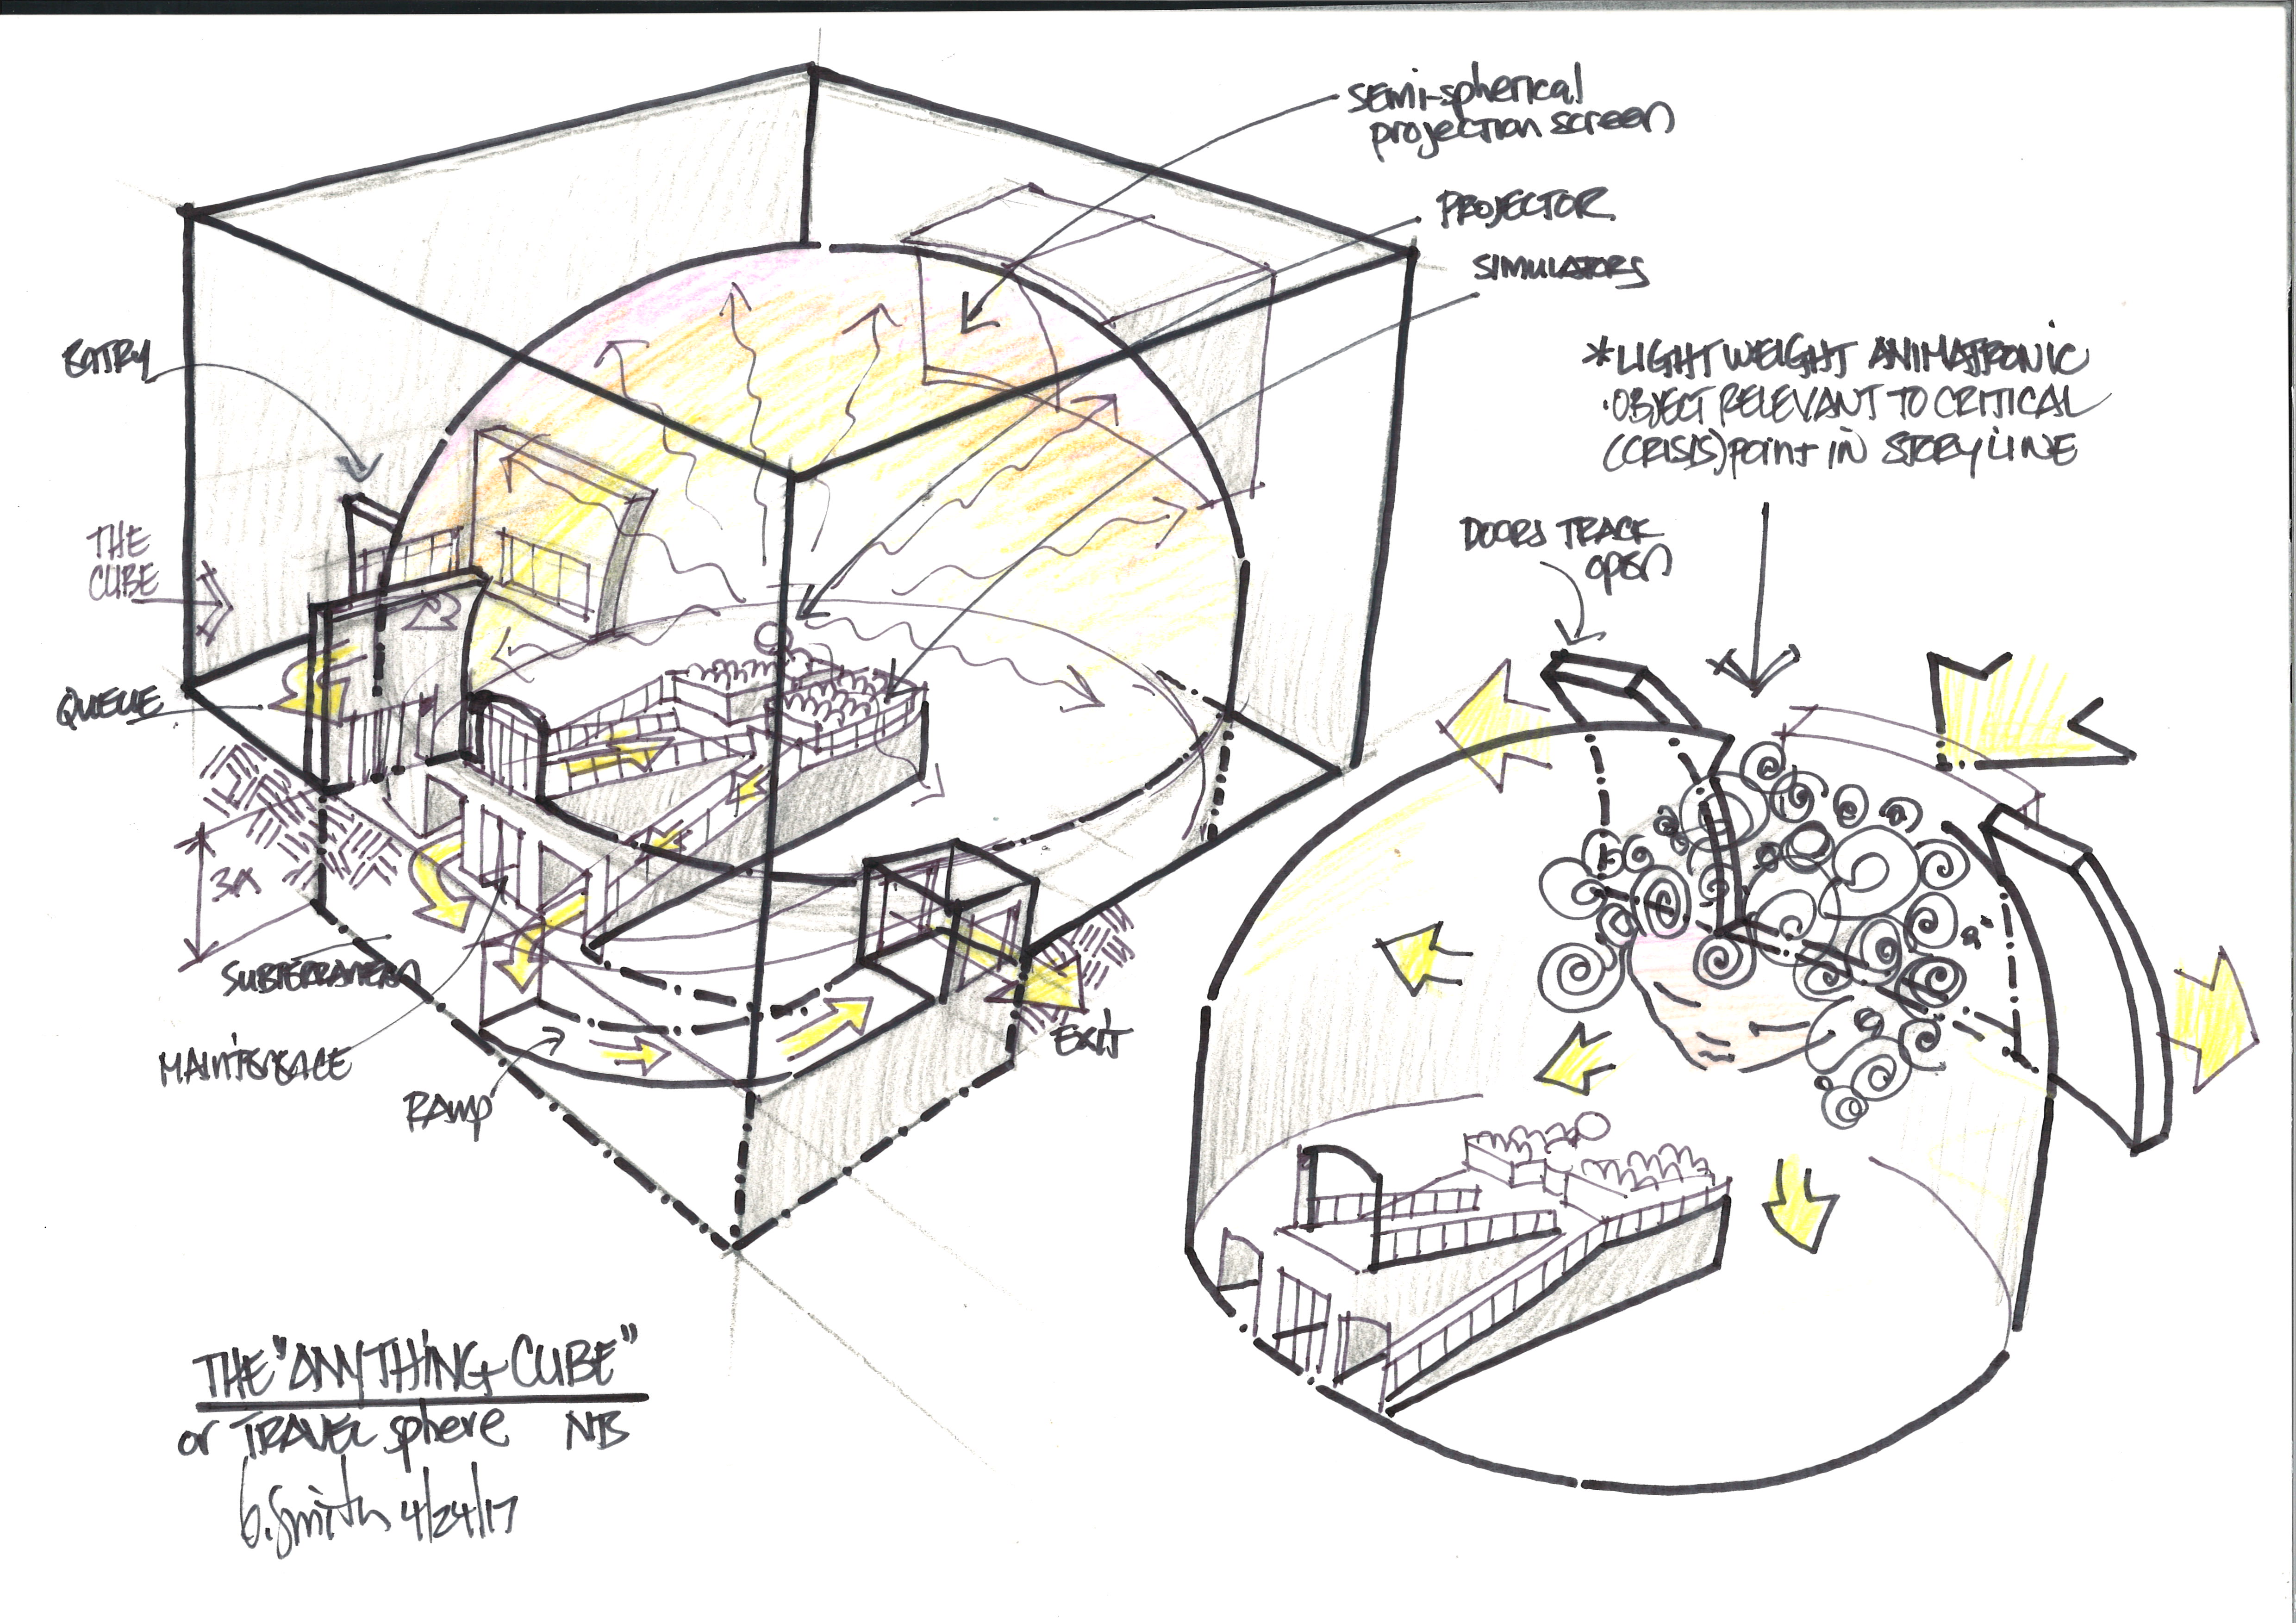 SEMI-SPHERICAL
PROJECTION SCREEN
PROJECTOR
SIMULATORS
ENTRY
*LIGHTWEIGHT ANIMATRONIC
·OBJECT RELEVANT TO CRITICAL
(CRISIS) POINT IN STORYLINE
DOORS TRACK
OPEN
THE
CUBE
QUEUE
SUBTERRANEAN
MAINTENANCE
RAMP
EXIT
THE "ANYTHING CUBE"
or TRAVEL SPHERE NB
b. Smith 4/24/17